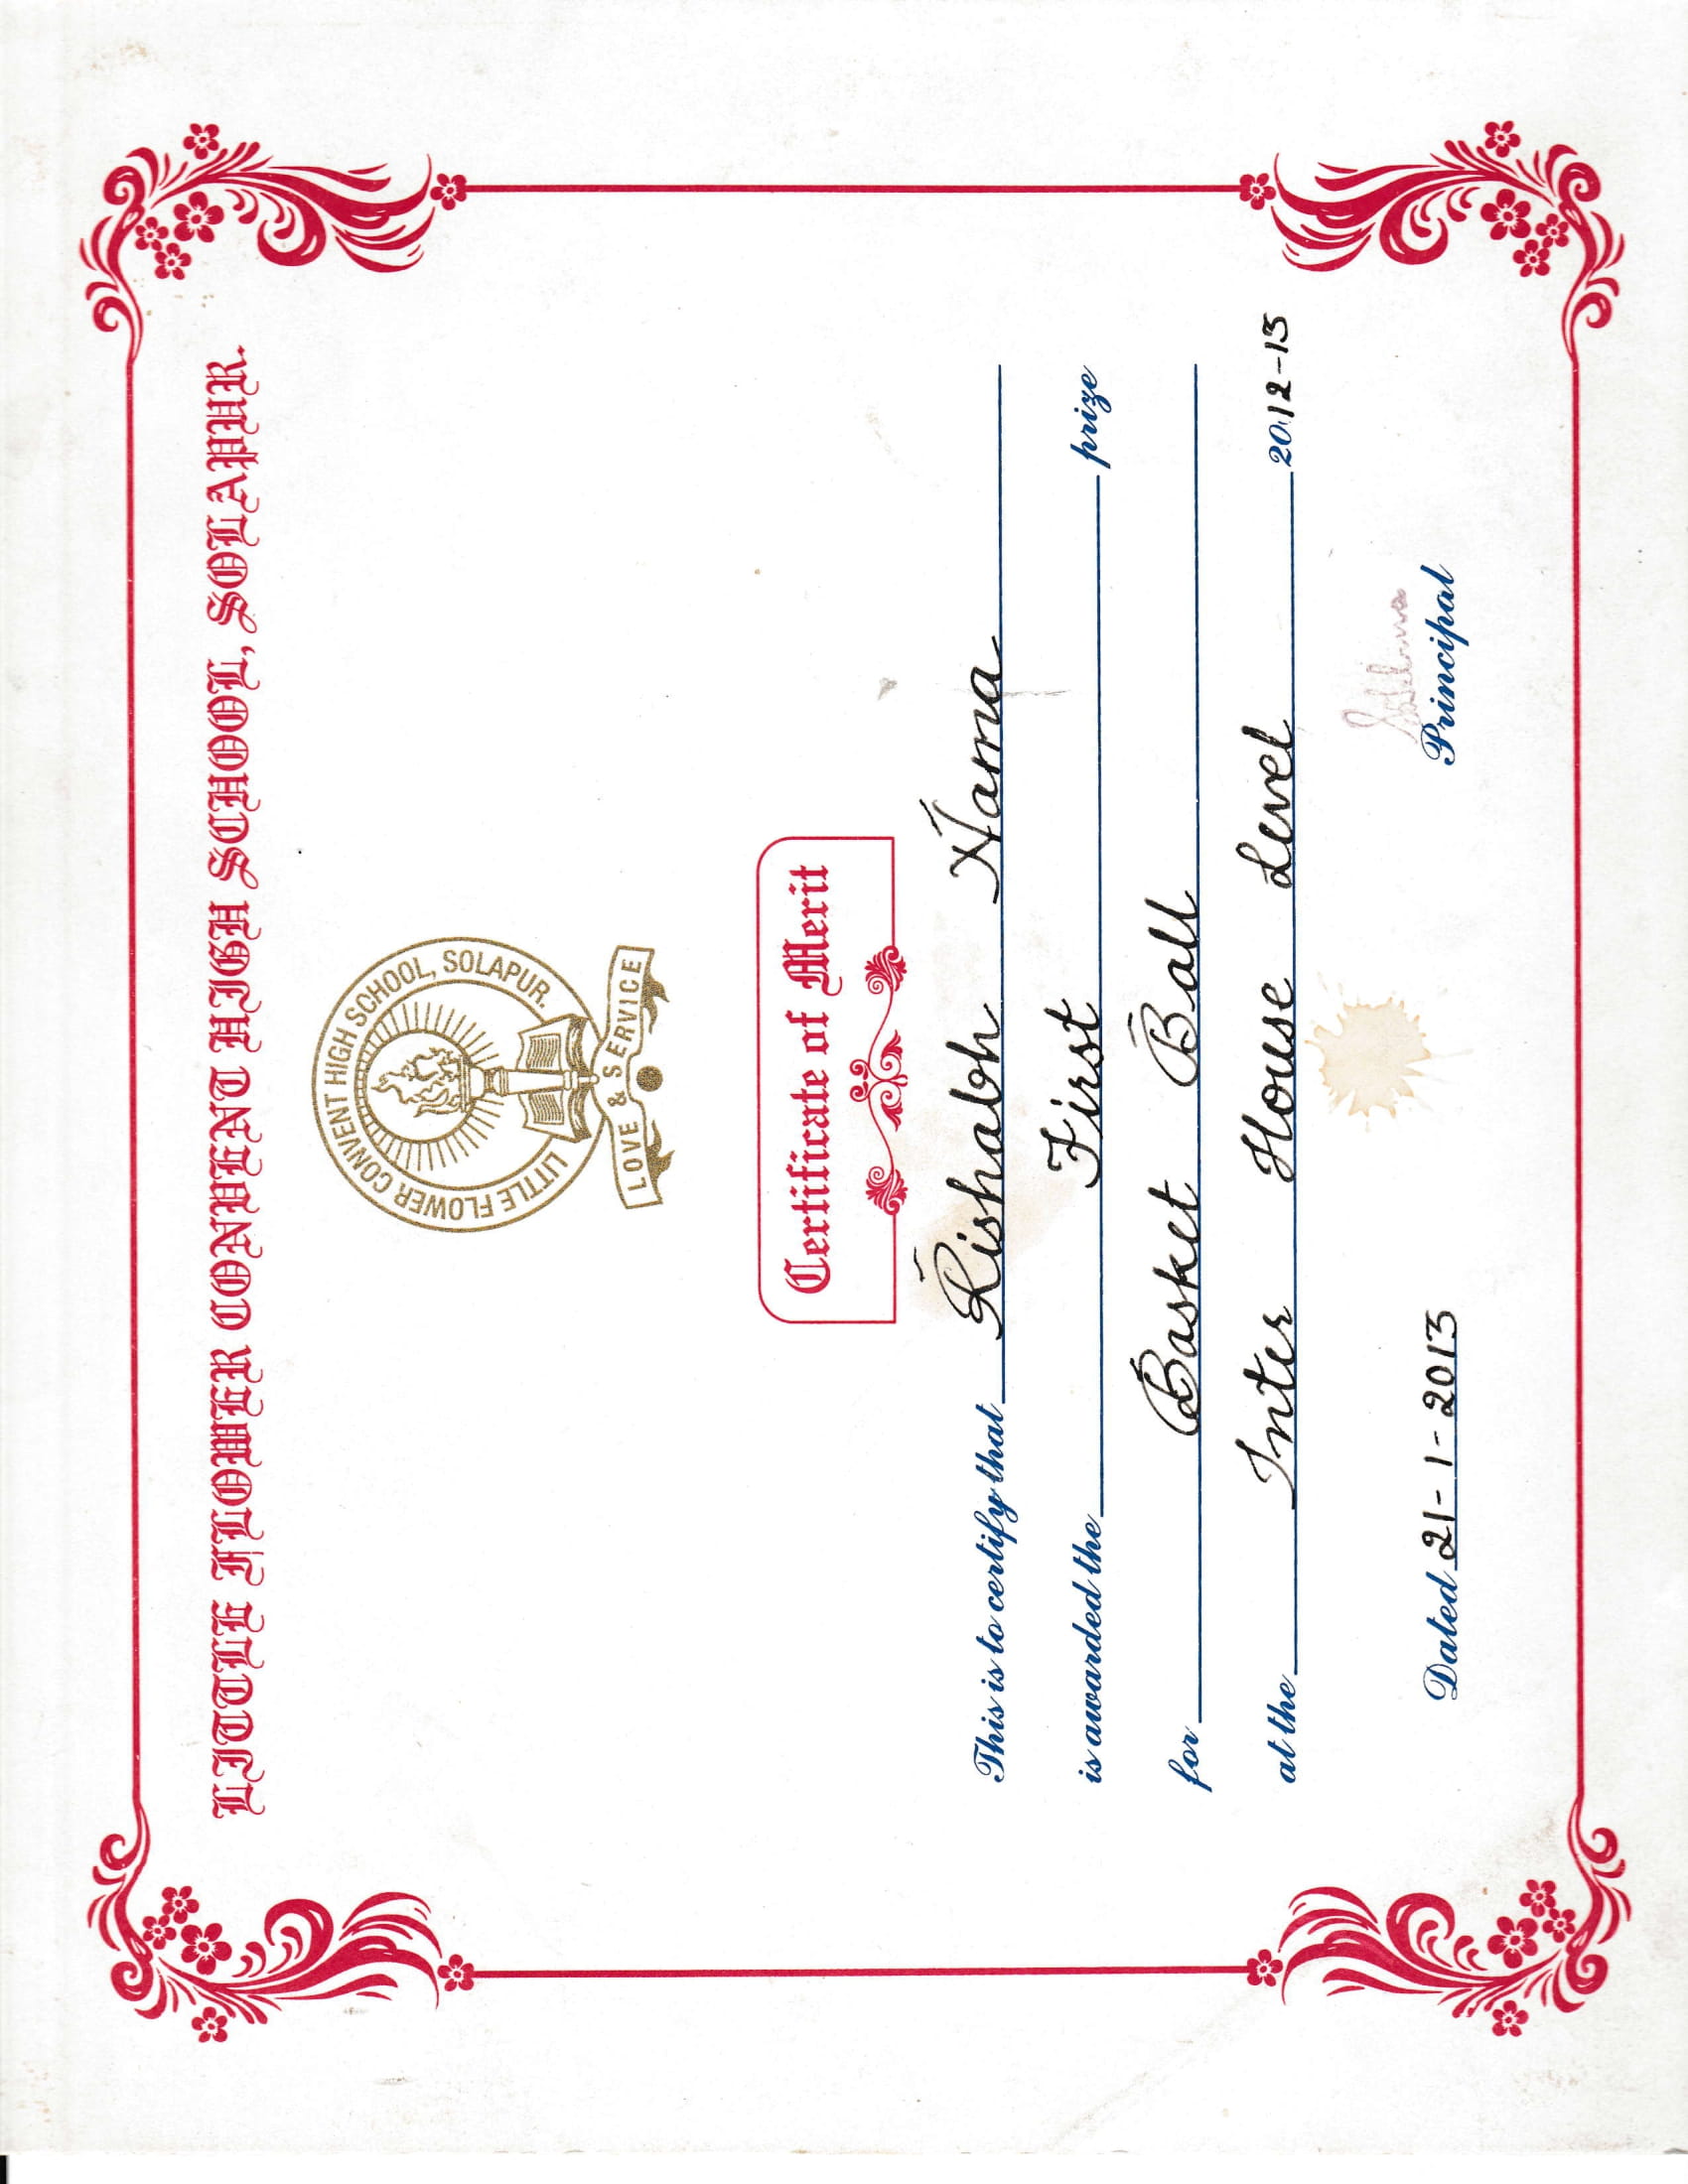 LITTLE FLOWER CONVENT HIGH SCHOOL, SOLAPUR.
LITTLE FLOWER CONVENT HIGH SCHOOL, SOLAPUR.
LOVE & SERVICE
Certificate of Merit
This is to certify that Rishabh Nama
is awarded the First prize
for Basket Ball
at the Inter House Level 2012-13
Dated 21-1-2013 Principal